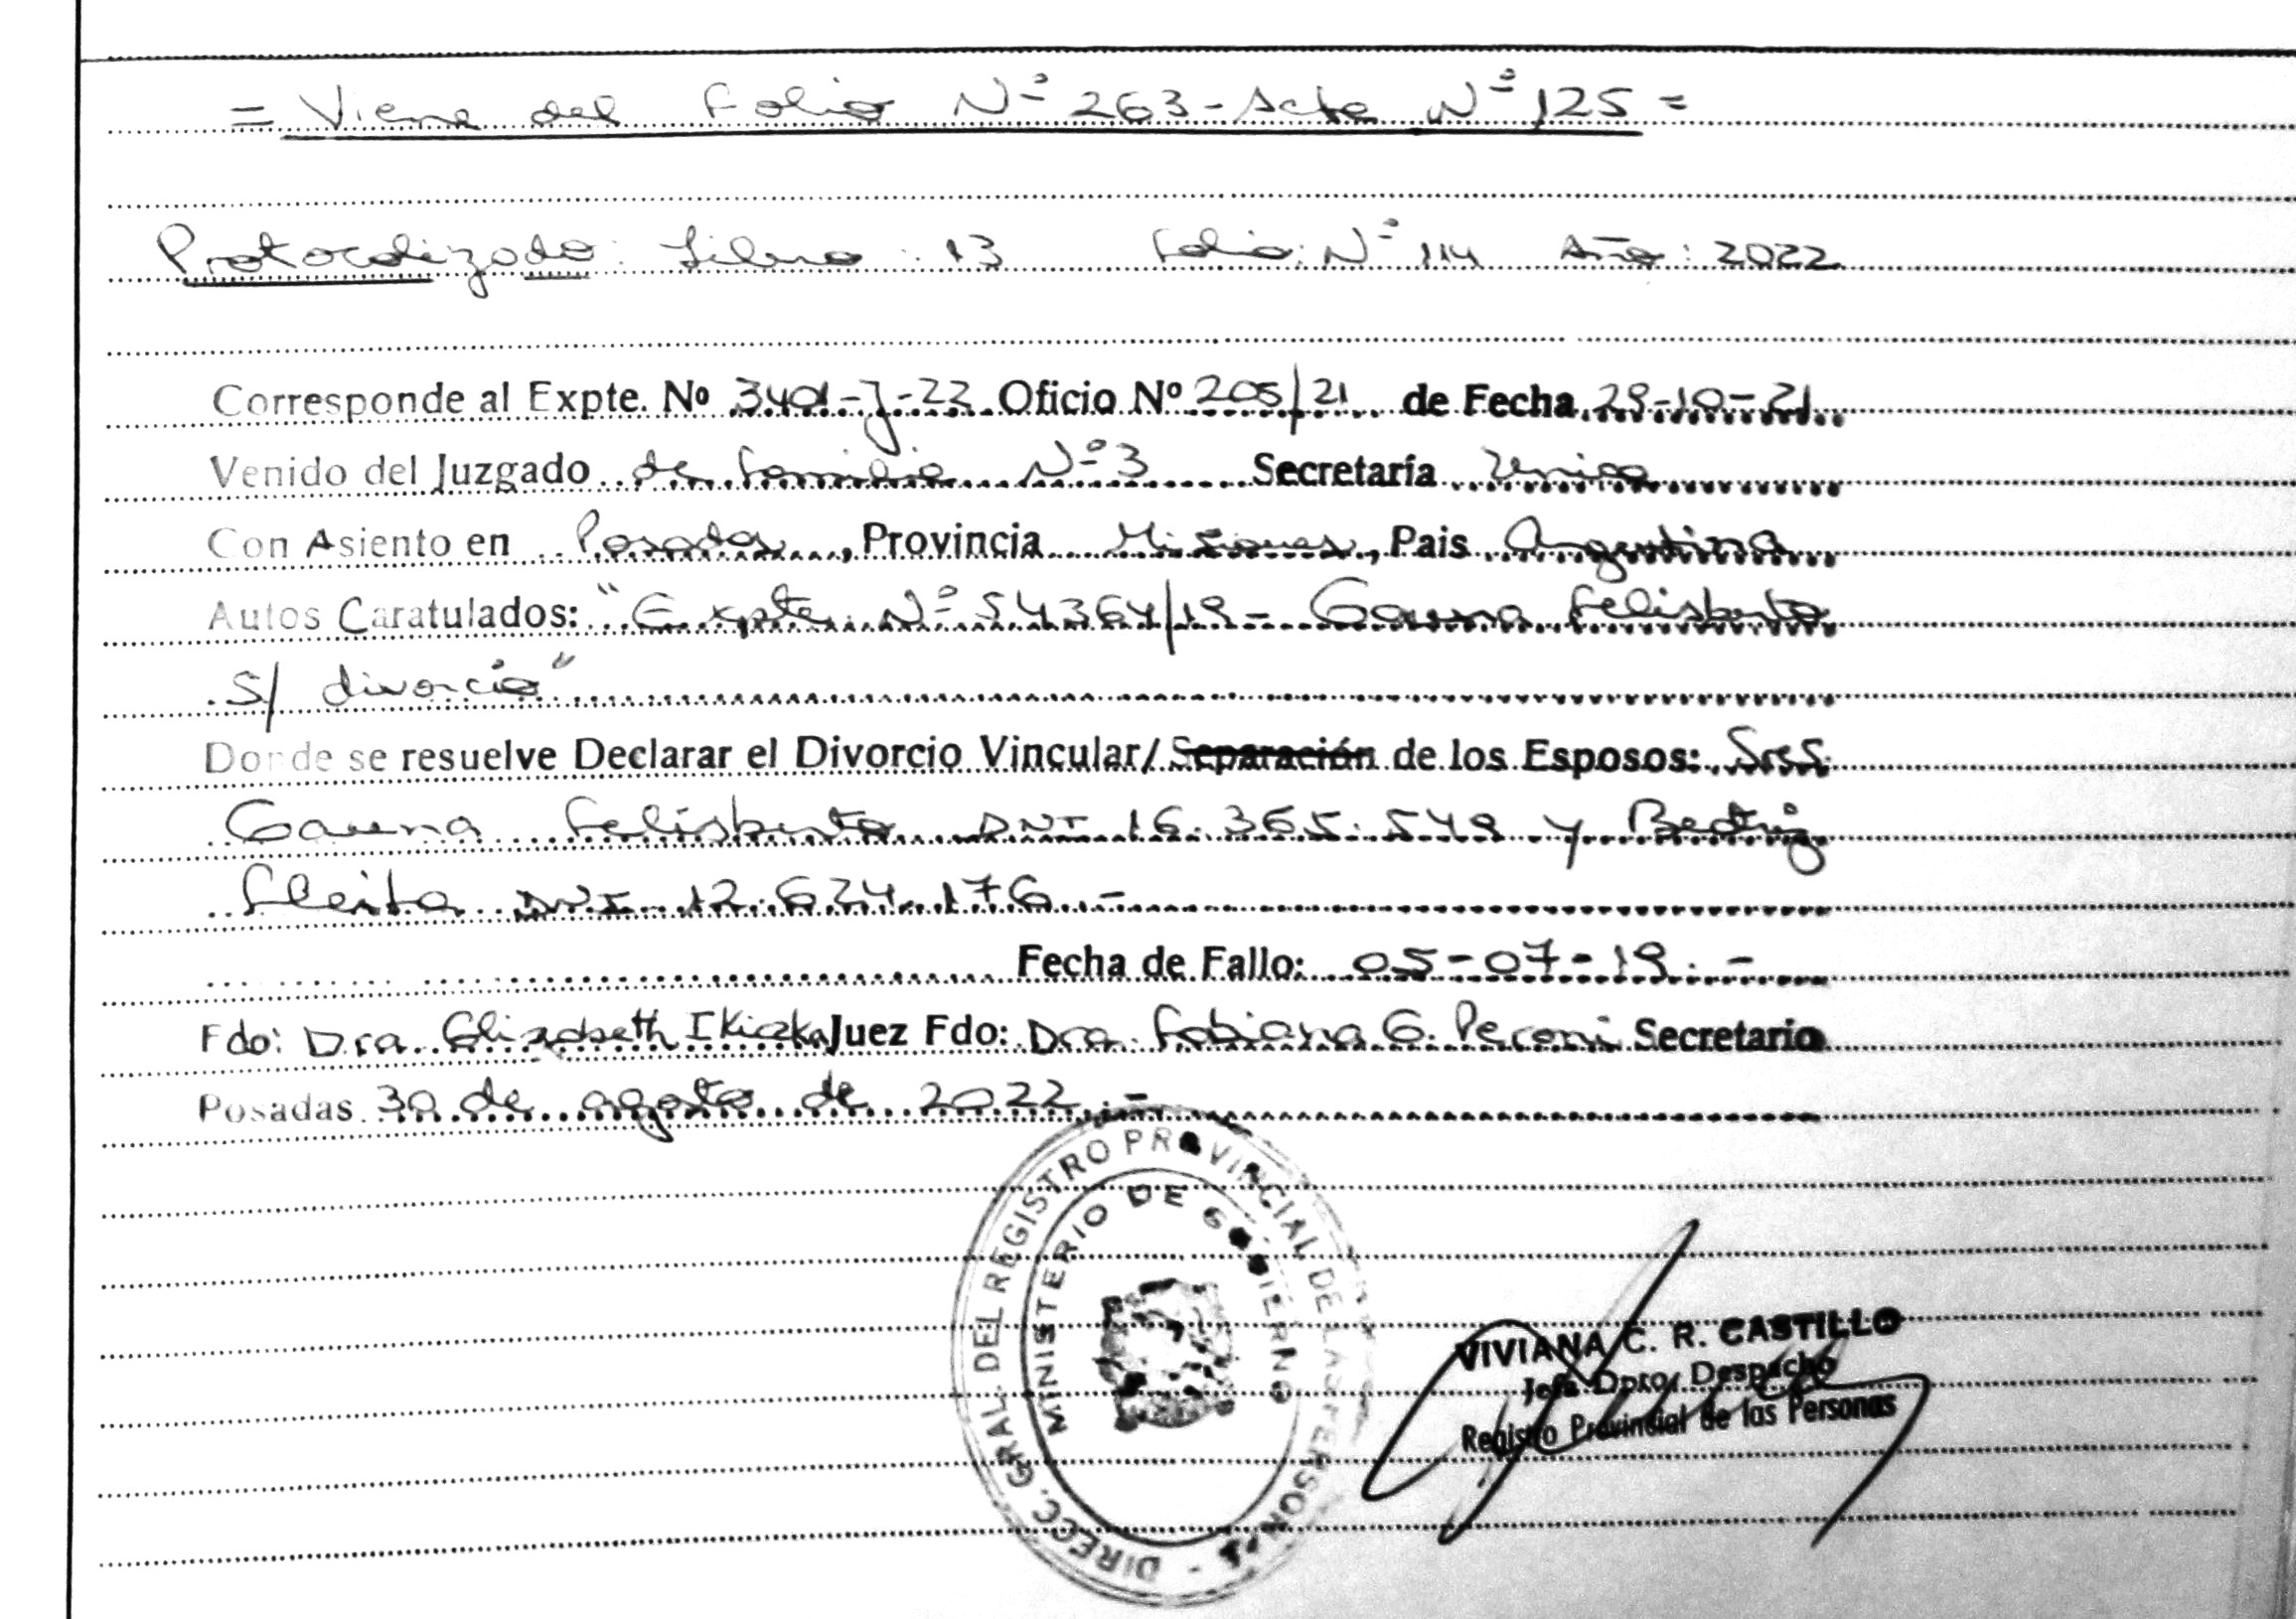 = Viene del Folio Nº 263 - Acta Nº 125 =
Protocolizado: Libro: 13 Folio: Nº 114 Año: 2022
Corresponde al Expte. Nº 3401-J-22 Oficio Nº 205/21 de Fecha 29-10-21
Venido del Juzgado de Familia Nº 3 Secretaría Unica
Con Asiento en Posadas, Provincia Misiones, Pais Argentina
Autos Caratulados: "Expte. Nº 54364/19 - Gauna Felisberto
S/ divorcio"
Donde se resuelve Declarar el Divorcio Vincular/ Separación de los Esposos: Sres
Gauna Felisberto DNI 16.365.549 y Beatriz
Fleita DNI 12.624.176.-
Fecha de Fallo: 05-07-19.-
Fdo: Dra. Elizabeth Kiczka Juez Fdo: Dra. Fabiana G. Peroni Secretario
Posadas 30 de agosto de 2022.-
DIRECC. GRAL. DEL REGISTRO PROVINCIAL DE LAS PERSONAS -
MINISTERIO DE GOBIERNO
VIVIANA C. R. CASTILLO
Jefa Dpto. Despacho
Registro Provincial de las Personas